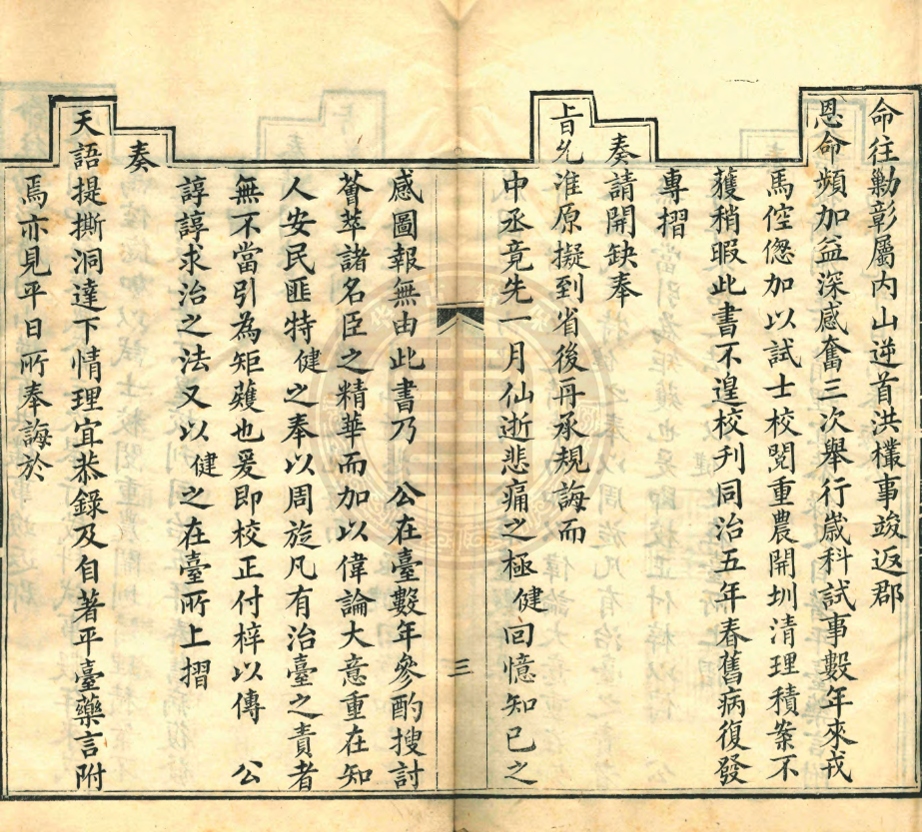 命往勦彰屬内山逆首洪欉事竣返郡
恩命頻加益深感奮三次舉行歲科試事數年來戎
馬倥偬加以試士校閱重農開圳清理積案不
獲稍暇此書不遑校刊同治五年春舊病復發
專摺
奏請開缺奉
旨允准原擬到省後再承規誨而
中丞竟先一月仙逝悲痛之極健回憶知已之
三
感圖報無由此書乃公在臺數年參酌搜討
薈萃諸名臣之精華而加以偉論大意重在知
人安民匪特健之奉以周旋凡有治臺之責者
無不當引為矩矱也爰即校正付梓以傳公
諄諄求治之法又以健之在臺所上摺
奏
天語提撕洞達下情理宜恭錄及自著平臺藥言附
焉亦見平日所奉誨於